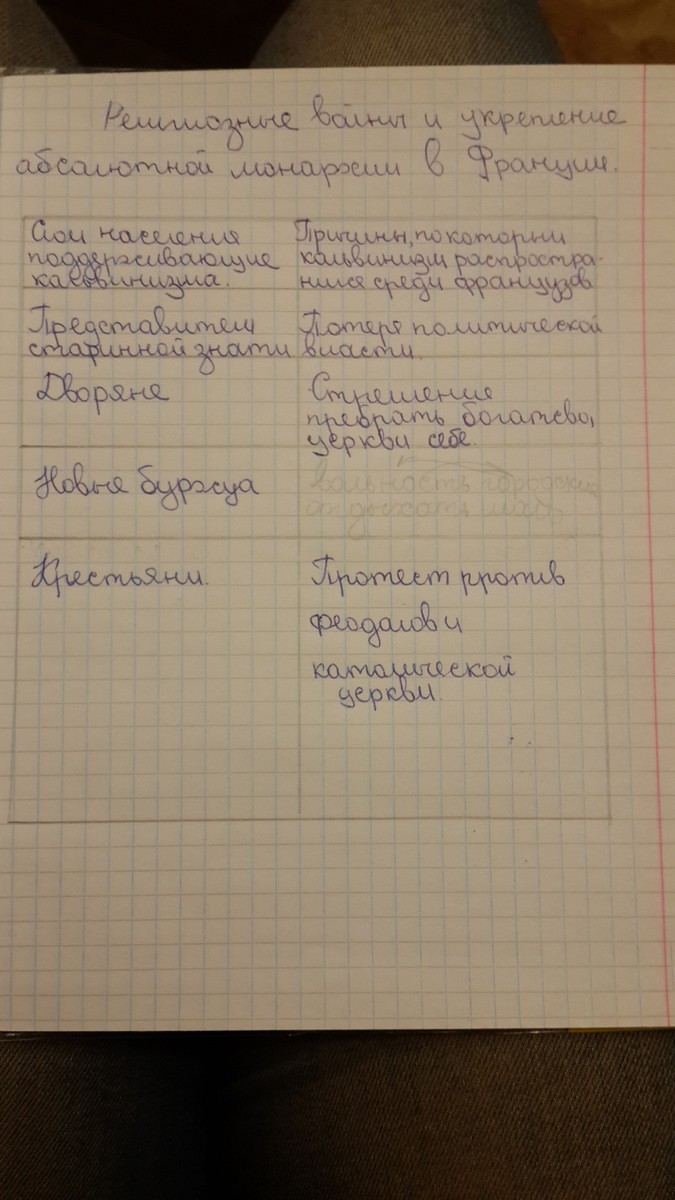 Религиозные войны и укрепление
абсолютной монархии в Франции.
Слои населения
поддерживающие
кальвинизма.
Причины, по которым
кальвинизм распростра-
нился среди французов
Представители
старинной знати
Потеря политической
власти.
Дворяне
Стремление
пребрать богатсво,
церкви себе.
Новые буржуа
вольность городских
отдыхать
Крестьяни.
Протест рротив
феодалов и
католической
церкви.